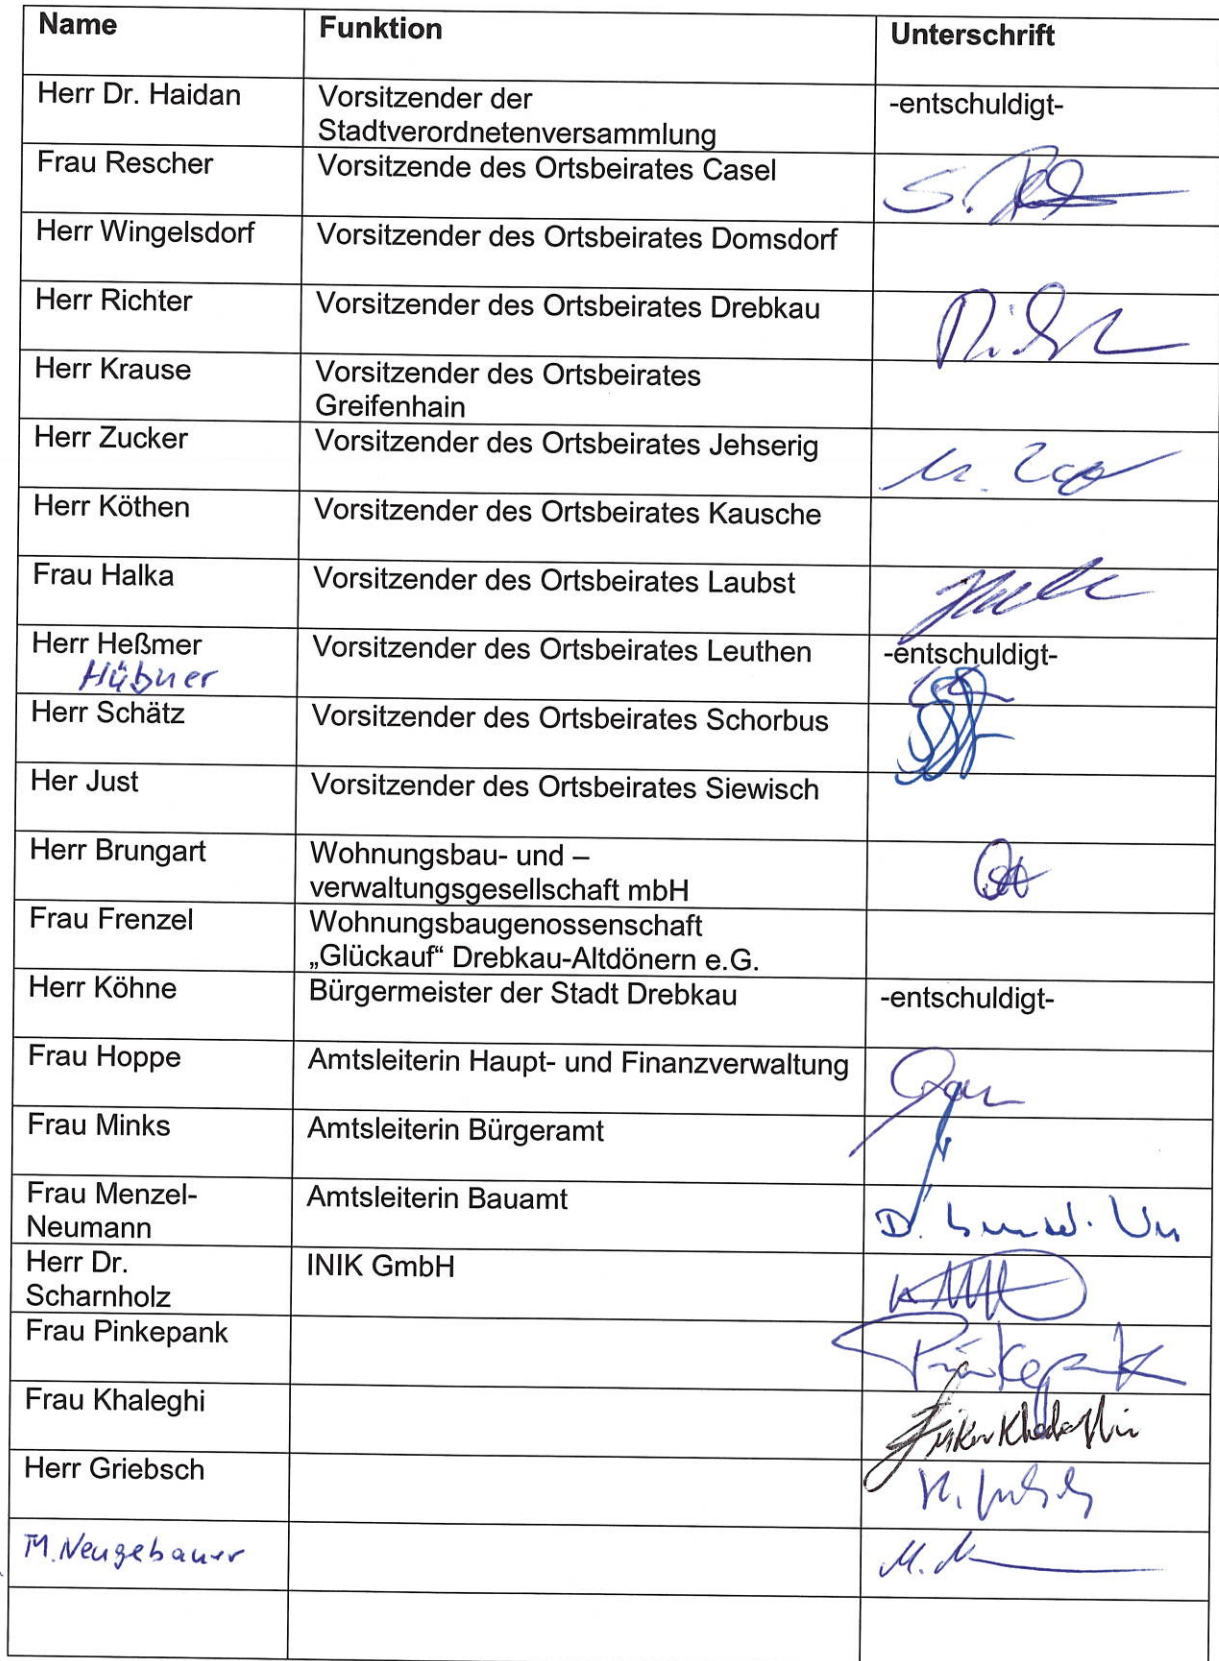 Name Funktion Unterschrift
Herr Dr. Haidan Vorsitzender der -entschuldigt-
Stadtverordnetenversammlung
Frau Rescher Vorsitzende des Ortsbeirates Casel
S.
Herr Wingelsdorf Vorsitzender des Ortsbeirates Domsdorf
Herr Richter Vorsitzender des Ortsbeirates Drebkau
Herr Krause Vorsitzender des Ortsbeirates
Greifenhain
Herr Zucker Vorsitzender des Ortsbeirates Jehserig
Herr Köthen Vorsitzender des Ortsbeirates Kausche
Frau Halka Vorsitzender des Ortsbeirates Laubst
Herr Heßmer Vorsitzender des Ortsbeirates Leuthen -entschuldigt-
Hübner
Herr Schätz Vorsitzender des Ortsbeirates Schorbus
Her Just Vorsitzender des Ortsbeirates Siewisch
Herr Brungart Wohnungsbau- und –
verwaltungsgesellschaft mbH
Frau Frenzel Wohnungsbaugenossenschaft
„Glückauf“ Drebkau-Altdönern e.G.
Herr Köhne Bürgermeister der Stadt Drebkau -entschuldigt-
Frau Hoppe Amtsleiterin Haupt- und Finanzverwaltung
Frau Minks Amtsleiterin Bürgeramt
Frau Menzel- Amtsleiterin Bauamt
Neumann D.
Herr Dr. INIK GmbH
Scharnholz
Frau Pinkepank Pinkepank
Frau Khaleghi
Herr Griebsch
M. Neugebauer M.